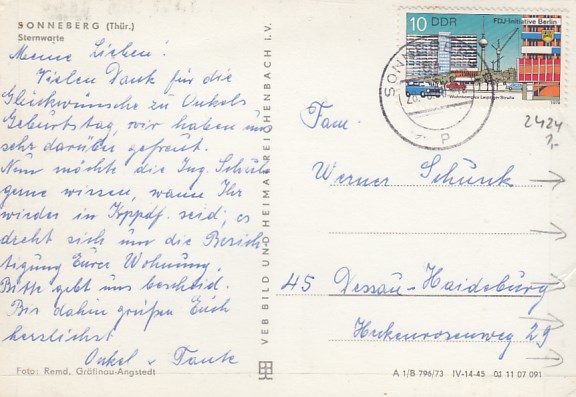 SONNEBERG (Thür.)
Sternwarte
Meine Lieben!
Vielen Dank für die
Glückwünsche zu Onkels
Geburtstag, wir haben uns
sehr darüber gefreut.
Nun möchte die Ing. Schule
gerne wissen, wann Ihr
wieder in Krppdf. seid; es
dreht sich um die Besich-
tigung Eurer Wohnung.
Bitte gebt uns bescheid.
Bis dahin grüßen Euch
herzlichst
Onkel u Tante
Foto: Remd, Gräfinau-Angstedt
VEB BILD UND HEIMAT REICHENBACH I. V.
10 DDR FDJ-Initiative Berlin
Leipziger Straße
1979
SONN
P
2424
Fam.
Werner Schunk
45 Dessau-Haideburg
Heckenrosenweg 29
A 1/B 796/73 IV-14-45 01 11 07 091